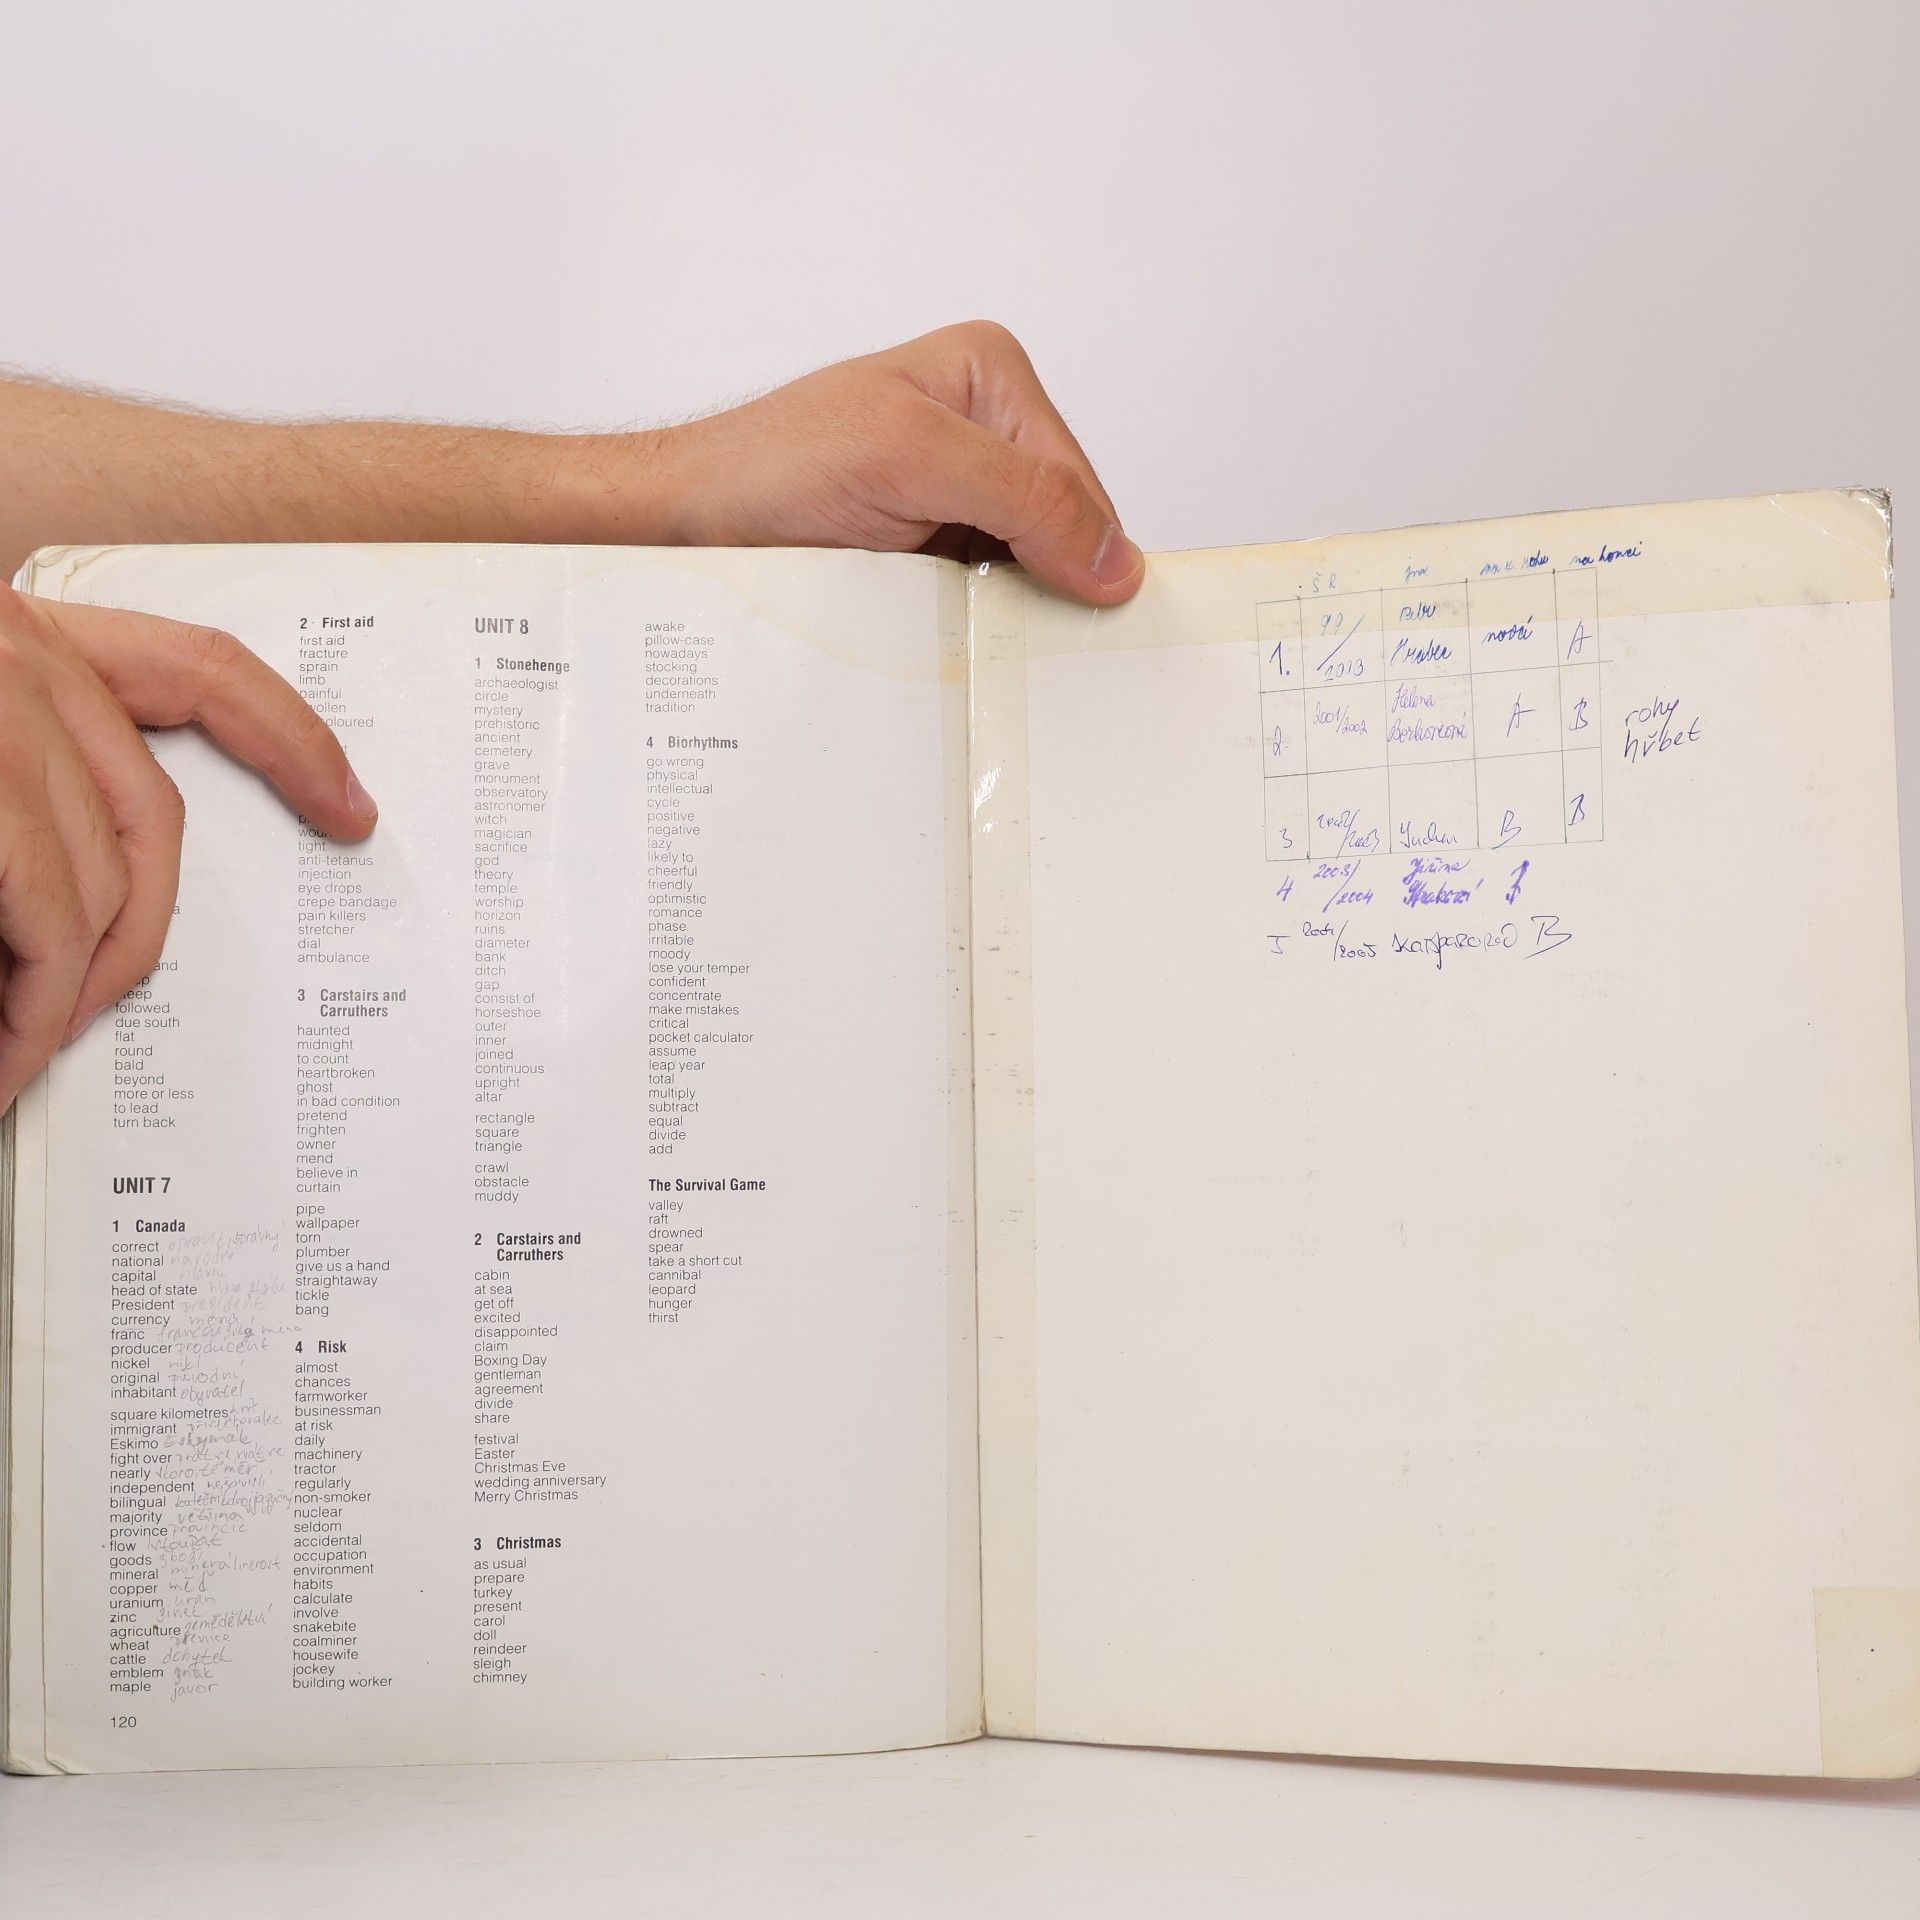 and
followed
due south
flat
round
bald
beyond
more or less
to lead
turn back
UNIT 7
1 Canada
correct
national
capital
head of state
President president
currency měna
franc
producer producent
nickel nikl
original původní
inhabitant obyvatel
square kilometres
immigrant
Eskimo
fight over
nearly
independent
bilingual
majority většina
province provincie
flow
goods zboží
mineral
copper měď
uranium uran
zinc zinek
agriculture zemědělství
wheat pšenice
cattle dobytek
emblem znak
maple javor
120
2 First aid
first aid
fracture
sprain
limb
painful
tight
anti-tetanus
injection
eye drops
crepe bandage
pain killers
stretcher
dial
ambulance
3 Carstairs and
Carruthers
haunted
midnight
to count
heartbroken
ghost
in bad condition
pretend
frighten
owner
mend
believe in
curtain
pipe
wallpaper
torn
plumber
give us a hand
straightaway
tickle
bang
4 Risk
almost
chances
farmworker
businessman
at risk
daily
machinery
tractor
regularly
non-smoker
nuclear
seldom
accidental
occupation
environment
habits
calculate
involve
snakebite
coalminer
housewife
jockey
building worker
UNIT 8
1 Stonehenge
archaeologist
circle
mystery
prehistoric
ancient
cemetery
grave
monument
observatory
astronomer
witch
magician
sacrifice
god
theory
temple
worship
horizon
ruins
diameter
bank
ditch
gap
consist of
horseshoe
outer
inner
joined
continuous
upright
altar
rectangle
square
triangle
crawl
obstacle
muddy
2 Carstairs and
Carruthers
cabin
at sea
get off
excited
disappointed
claim
Boxing Day
gentleman
agreement
divide
share
festival
Easter
Christmas Eve
wedding anniversary
Merry Christmas
3 Christmas
as usual
prepare
turkey
present
carol
doll
reindeer
sleigh
chimney
awake
pillow-case
nowadays
stocking
decorations
underneath
tradition
4 Biorhythms
go wrong
physical
intellectual
cycle
positive
negative
lazy
likely to
cheerful
friendly
optimistic
romance
phase
irritable
moody
lose your temper
confident
concentrate
make mistakes
critical
pocket calculator
assume
leap year
total
multiply
subtract
equal
divide
add
The Survival Game
valley
raft
drowned
spear
take a short cut
cannibal
leopard
hunger
thirst
Š R. na konci
1. 99/ nová A
2. 2001/2002 Helena A B
rohy
hřbet
3 B B
4 2003/2004 Jiřina
5 /2005 B